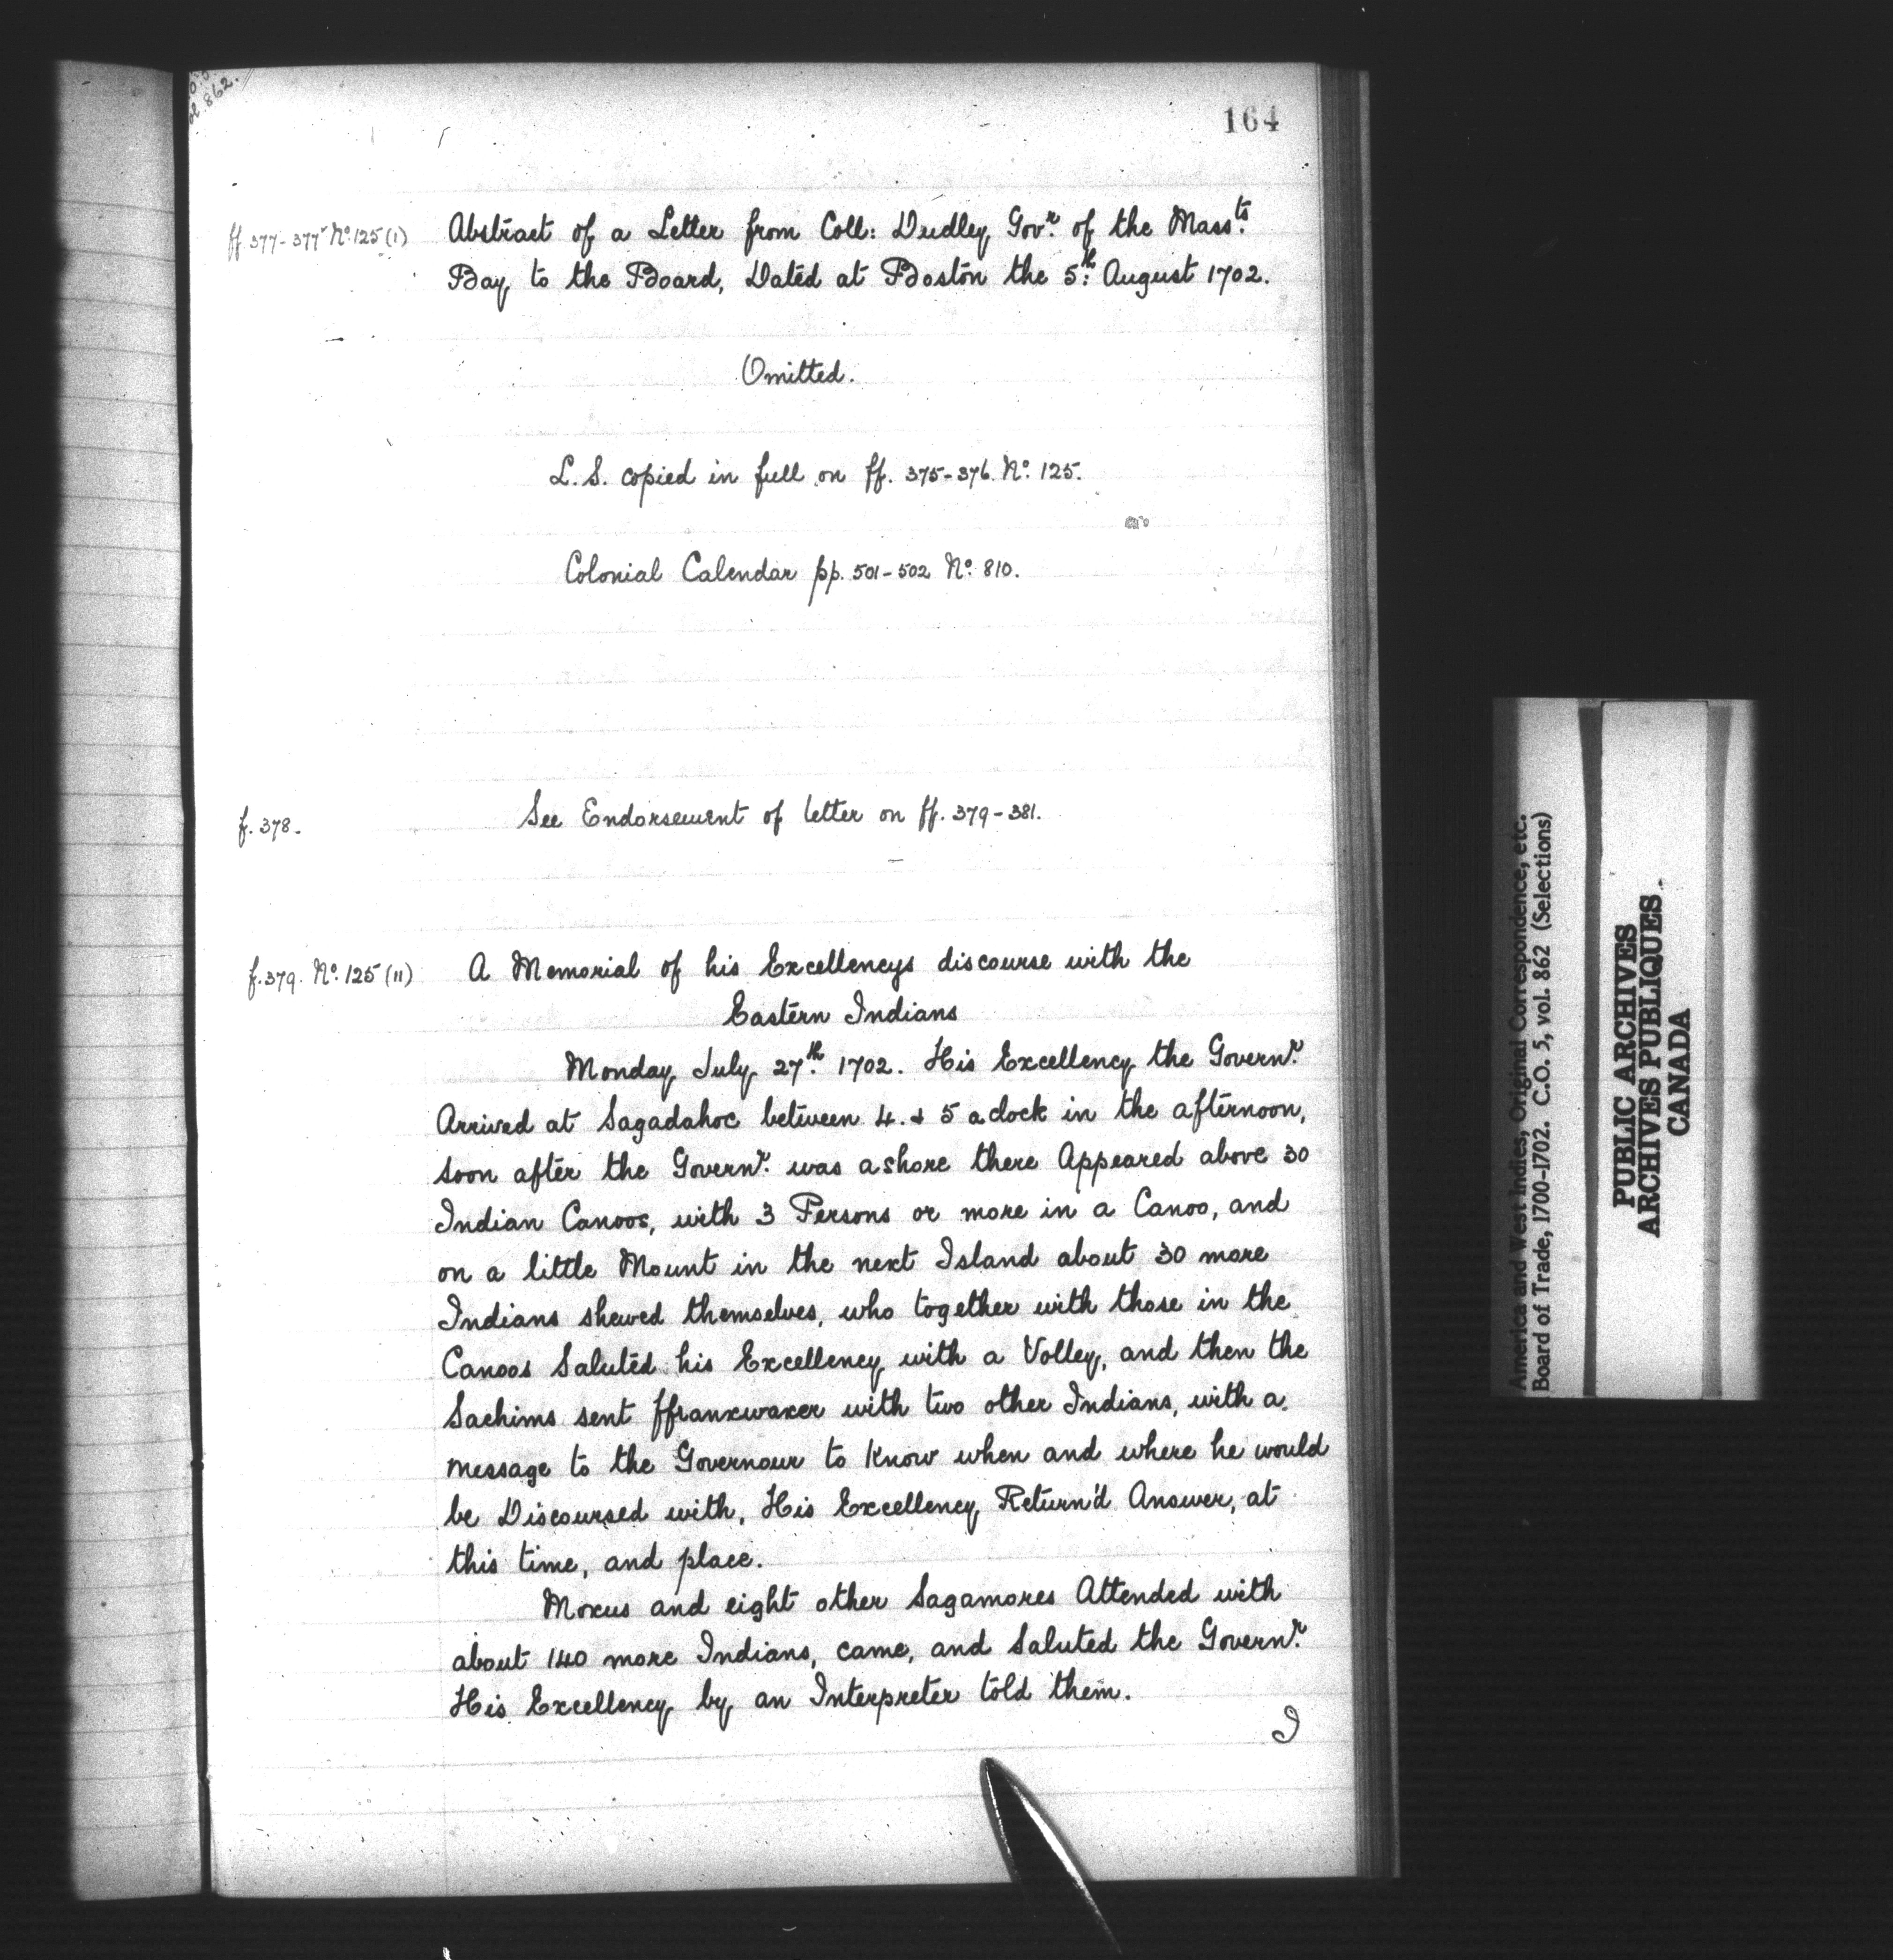 vol. 862.
164
ff. 377-377v No. 125 (1)
Abstract of a Letter from Coll: Dudley Govr. of the Massts.
Bay to the Board, Dated at Boston the 5th: August 1702.
Omitted.
L. S. copied in full on ff. 375-376. No. 125.
Colonial Calendar pp. 501-502 No. 810.
f. 378.
See Endorsement of letter on ff. 379-381.
f. 379. No. 125 (11)
A Memorial of his Excellencys discourse with the
Eastern Indians
Monday July 27th. 1702. His Excellency the Governr.
Arrived at Sagadahoc between 4. & 5 a clock in the afternoon,
soon after the Governr. was ashore there Appeared above 30
Indian Canoos, with 3 Persons or more in a Canoo, and
on a little Mount in the next Island about 30 more
Indians shewed themselves, who together with those in the
Canoos Saluted his Excellency with a Volley, and then the
Sachims sent ffranxwaxer with two other Indians, with a
message to the Governour to Know when and where he would
be Discoursed with, His Excellency Return'd Answer, at
this time, and place.
Moxus and eight other Sagamores Attended with
about 140 more Indians, came, and Saluted the Governr.
His Excellency by an Interpreter told them.
I
America and West Indies, Original Correspondence, etc.
Board of Trade, 1700-1702. C.O. 5, vol. 862 (Selections)
PUBLIC ARCHIVES
ARCHIVES PUBLIQUES
CANADA